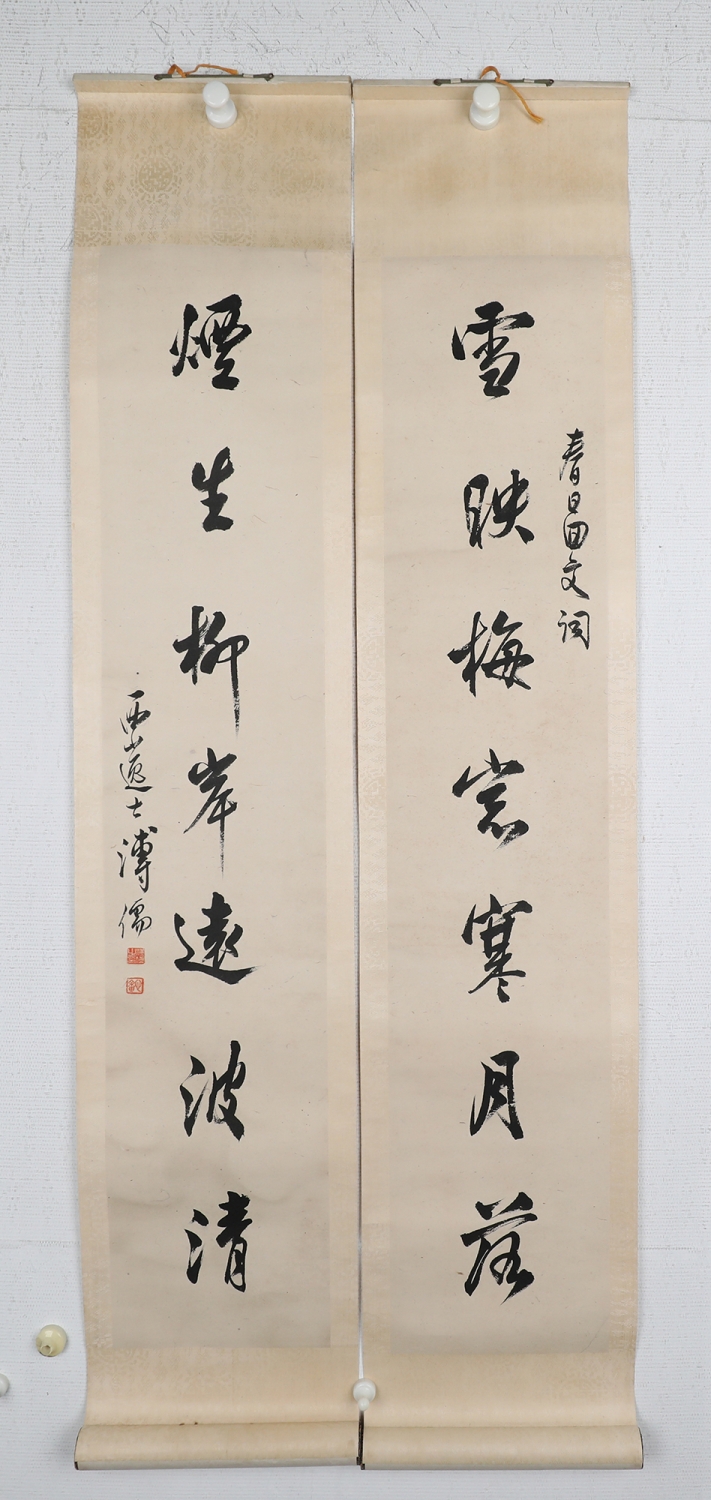 春日回文詞
雪映梅窓寒月落
煙生柳岸遠波清
西山逸士溥儒